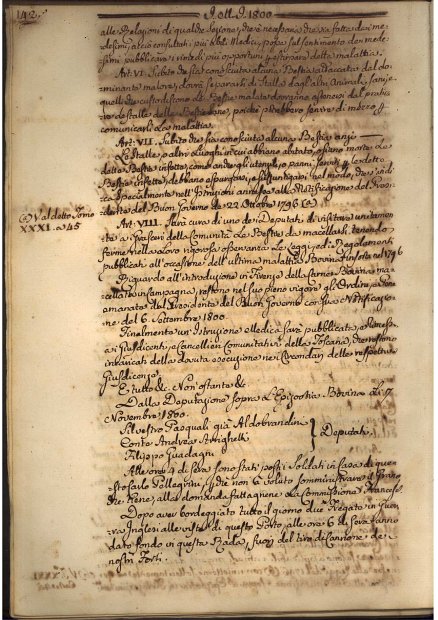 142.
A. ott. J. 1800
alle Relazioni di qualche lesione, che è necessario che sia fatta dai me-
desimi, acciò consultati i più abili Medici, possa sul sentimento dei mede-
simi pubblicare i rimedi più opportuni per estirpare della malattia.
Art. VI. Subito che sia conosciuta alcuna Bestia attaccata dal do-
minante malore, dovrà separarsi di Stalla dagli altri Animali, sani, e
quelli che custodiscono le Bestie malate dovranno astenersi dal prati-
care stalle delle Bestie sane, poichè potrebbero servire di mezzo a
comunicarli la malattia.
Art. VII. Subito che sia conosciuta alcuna Bestia anzi
Le Stalle, o altri Luoghi in cui abbiano abitato, o siano morte
delle Bestie infette, come anche gli utensili, o panni, serviti per le dette
Bestie infette, debbano espurgarsi, e profumigarsi nel modo, che s'indi-
ca specialmente nell'Istruzioni annesse alla Notificazione del Presi-
dente del Buon Governo de 22 Ottobre 1796 (a)
(a) Ved. detto Tomo
XXXI. a 45
Art. VIII. Sarà cura di uno de' Deputati di visitare
ai Pascoli della Comunità Le Bestie da macellarsi, tenendo
ferme nella loro rigorosa osservanza le Leggi, ed i Regolamenti
pubblicati all'occasione dell'ultima malattia Bovina insorta nel 1796
Riguardo all'introduzione in Firenze della Carne Bovina ma-
cellata in Campagna, restono nel suo pieno vigore gli Ordini
emanati dal Presidente del Buon Governo con sua Notificazio-
ne del 6. Settembre 1800.
Finalmente un'Istruzione Medica sarà pubblicata, e rimessa
ai Giusdicenti, e Cancellieri Comunitativi della Toscana, che restono
incaricati della dovuta esecuzione nei Circondari delle respettive
Giusdicenze.
E tutto &. Non ostante &.
Dalla Deputazione sopra l'Epizootia Bovina li 17
Novembre 1800.
Silvestro Pasquali già Aldobrandini
Conte Andrea Arrighetti } Deputati.
Filippo Guadagni
Alle ore 4 di sera sono stati posti i Soldati in Casa di que-
sto Carlo Pellegrini, che non à voluto somministrare il Grano
che tiene, alla domanda fattagnene da la Commissione Francese.
Dopo aver bordeggiato tutto il giorno due Fregate in Guer-
ra Inglesi alle viste di questo Porto, alle ore 6 di sera anno
dato fondo in questa Rada, fuori del tiro di Cannone de
nostri Forti.